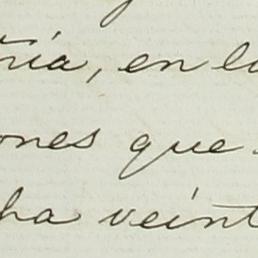 ría, en l
ones que
ha veint